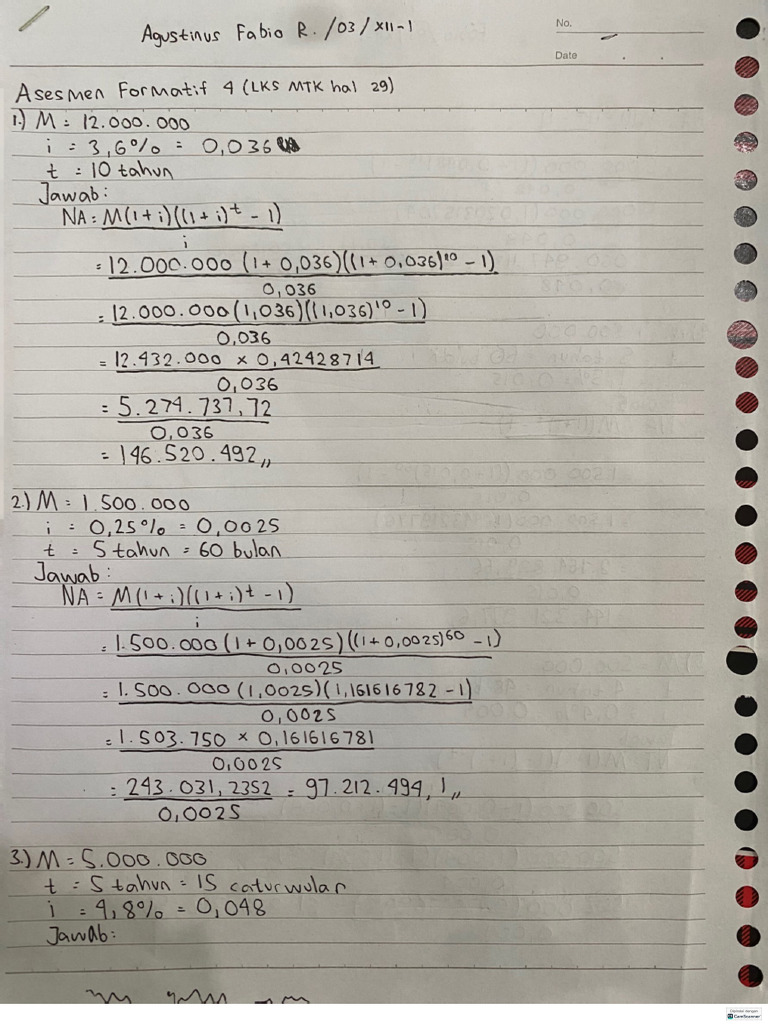 No.
Agustinus Fabio R. /03/XII-1
Date
Asesmen Formatif 4 (LKS MTK hal 29)
1.) M = 12.000.000
i = 3,6% = 0,036
t = 10 tahun
Jawab:
NA = M(1+i)((1+i)^t - 1)
i
= 12.000.000 (1+0,036)((1+0,036)^10 - 1)
0,036
= 12.000.000 (1,036)((1,036)^10 - 1)
0,036
= 12.432.000 × 0,42428714
0,036
= 5.274.737,72
0,036
= 146.520.492,,
2.) M = 1.500.000
i = 0,25% = 0,0025
t = 5 tahun = 60 bulan
Jawab:
NA = M(1+i)((1+i)^t - 1)
i
= 1.500.000 (1+0,0025)((1+0,0025)^60 - 1)
0,0025
= 1.500.000 (1,0025)(1,161616782 - 1)
0,0025
= 1.503.750 × 0,161616781
0,0025
= 243.031,2352 = 97.212.494,1,,
0,0025
3.) M = 5.000.000
t = 5 tahun = 15 caturwulan
i = 4,8% = 0,048
Jawab:
CamScanner